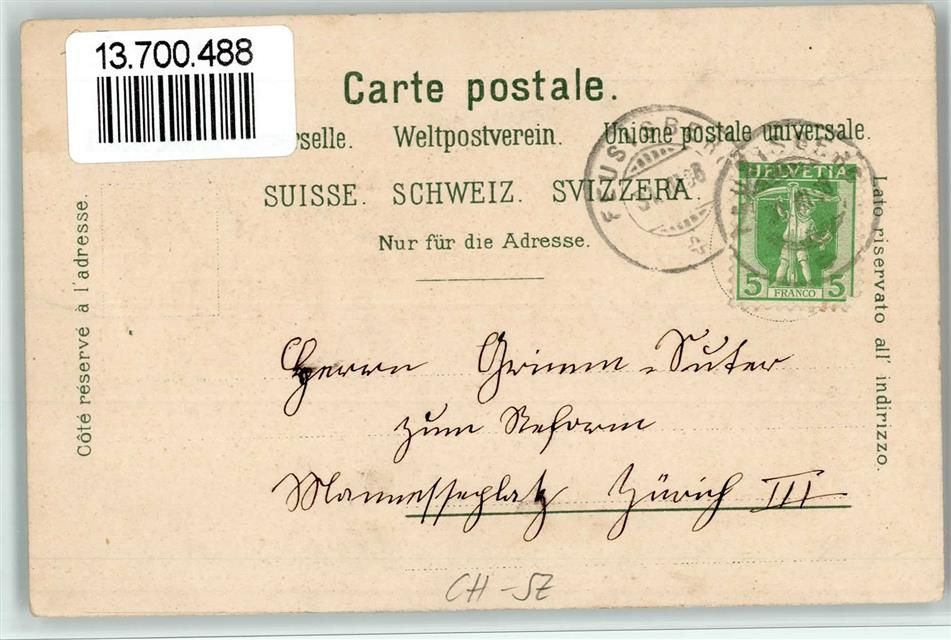 13.700.488
Carte postale.
rselle. Weltpostverein. Unione postale universale.
SUISSE. SCHWEIZ. SVIZZERA.
Nur für die Adresse.
Côté réservé à l'adresse.
Lato riservato all' indirizzo.
FEUSISBERG
HELVETIA
5 FRANCO 5
Herrn Grimm-Suter
zum Reform
Mannesseplatz Zürich III
CH-SZ